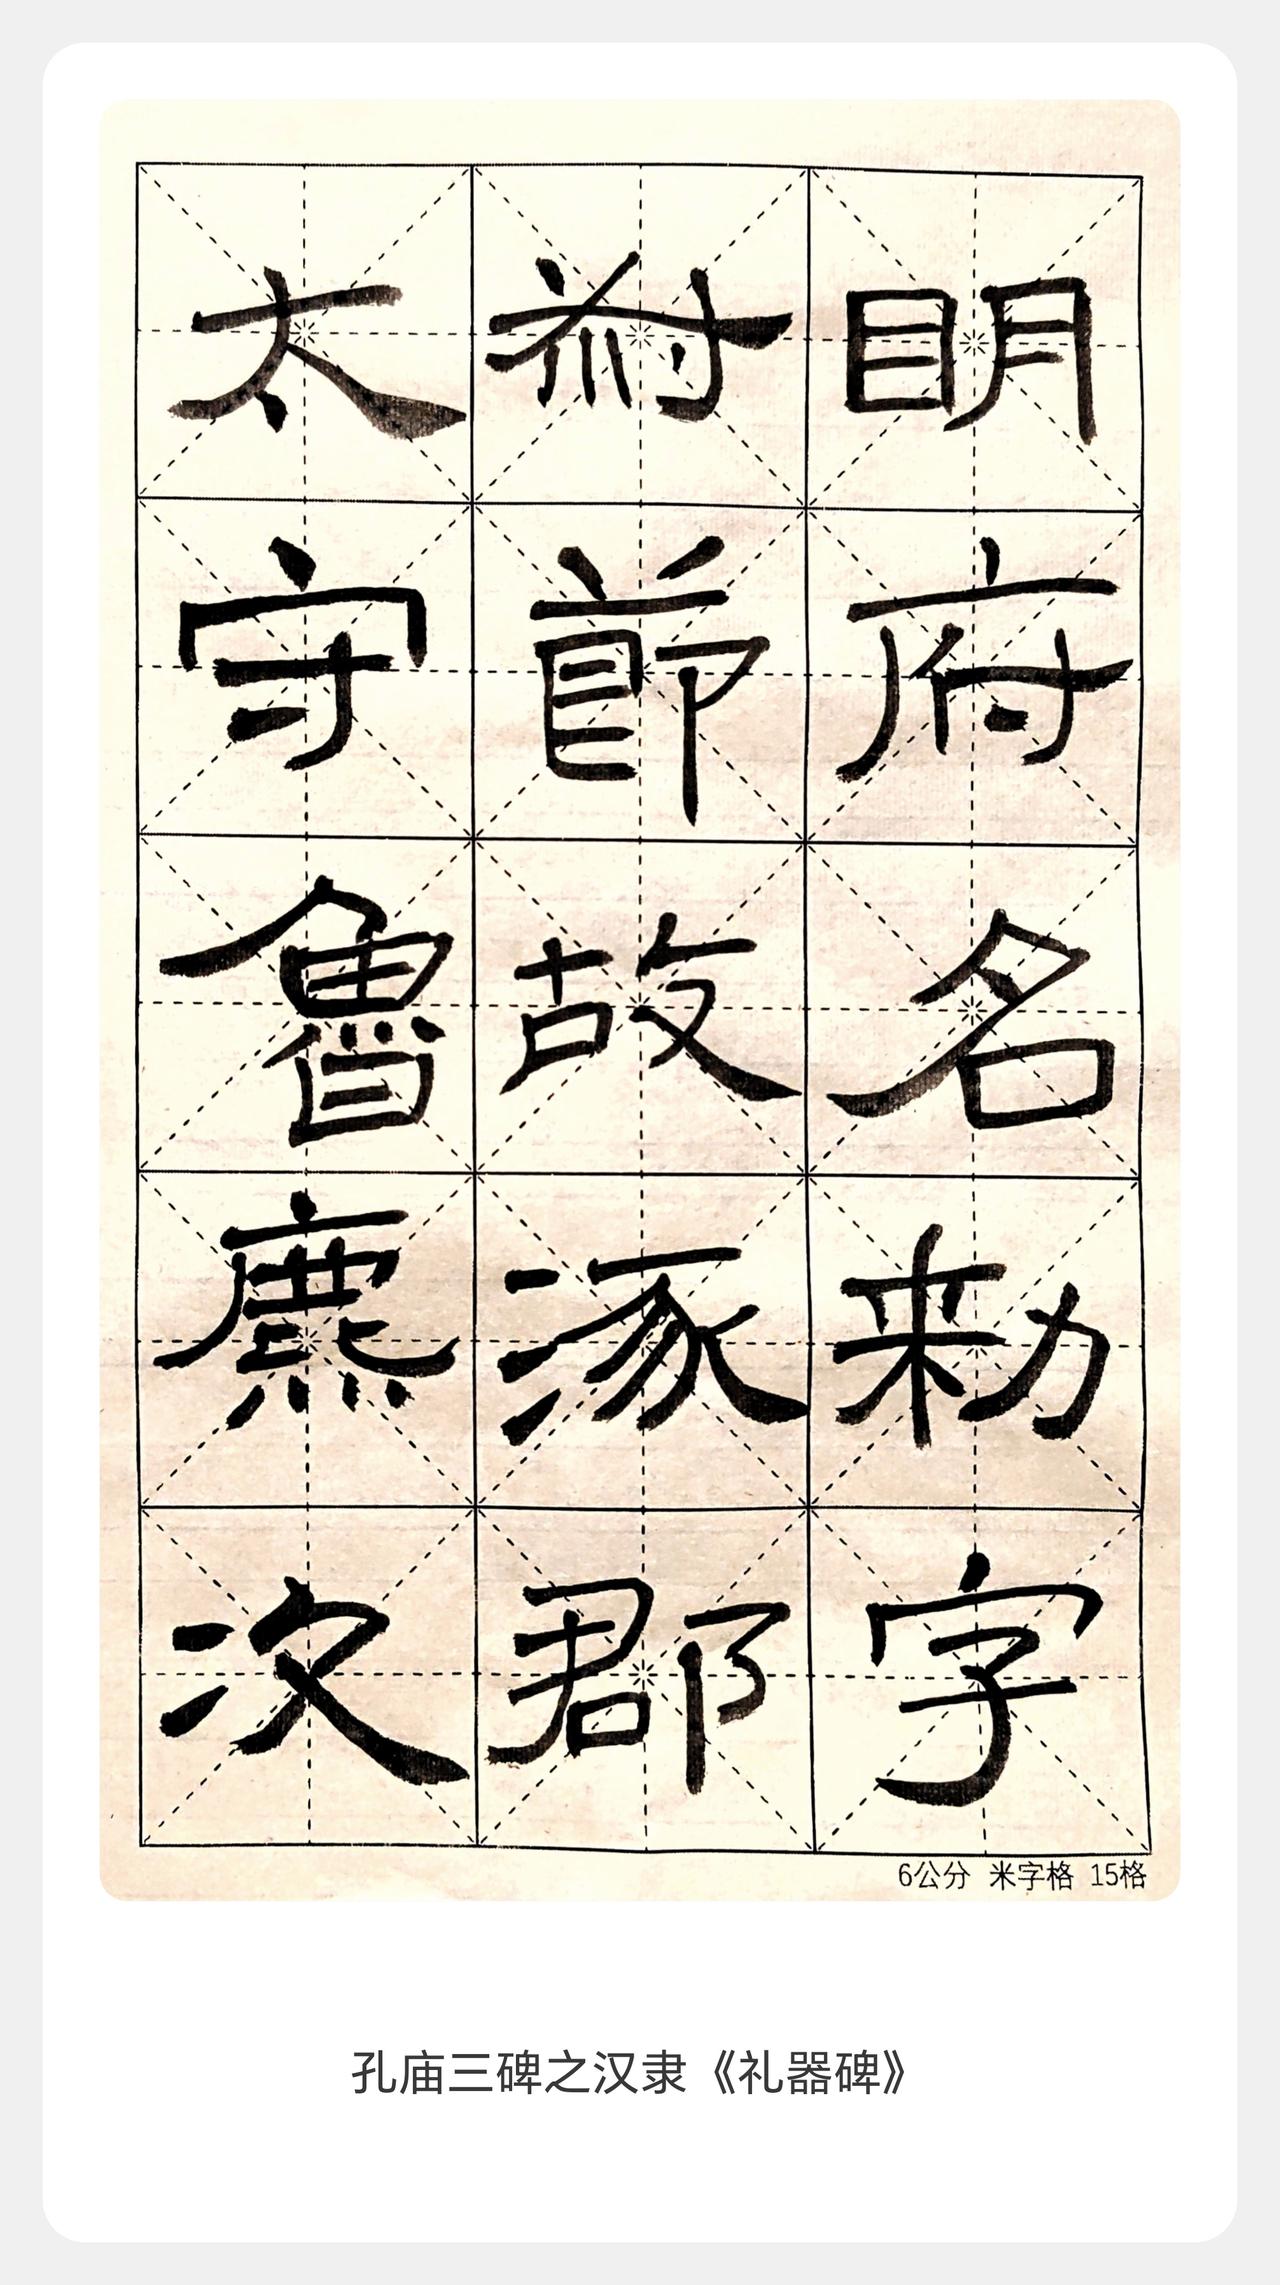 明府名勑字
叔節故涿郡
太守魯麃次
6公分 米字格 15格
孔庙三碑之汉隶《礼器碑》